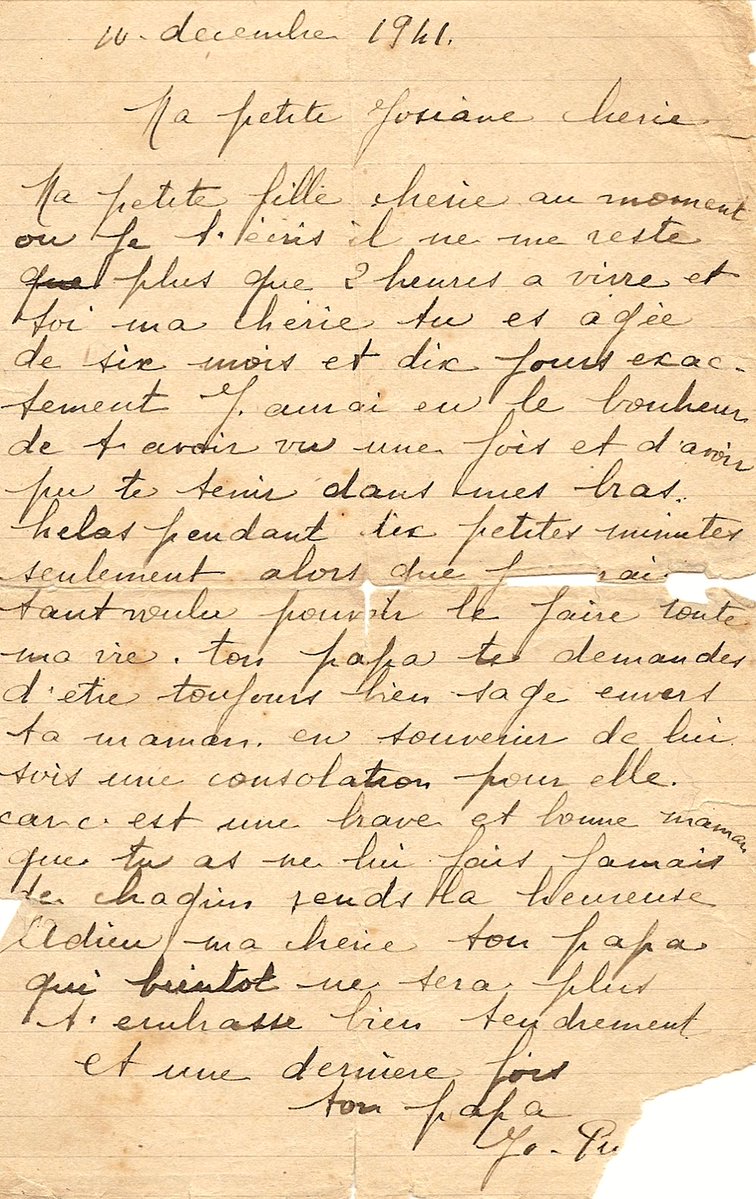 10. decembre 1941.
Ma petite Josiane cherie
Ma petite fille cherie au moment
ou je t'écris il ne me reste
que plus que 2 heures a vivre et
toi ma cherie tu es agée
de six mois et dix jours exac-
tement J'aurai eu le bonheur
de t'avoir vu une fois et d'avoir
pu te tenir dans mes bras.
helas pendant dix petites minutes
seulement alors que j rai
tant voulu pouvoir le faire toute
ma vie. ton papa te demandes
d'etre toujours bien sage envers
ta maman. en souvenir de lui
sois une consolation pour elle.
car c'est une brave et bonne maman
que tu as ne lui fais jamais
de chagrin rends la heureuse
Adieu ma cherie ton papa
qui bientot ne sera plus
t'embrasse bien tendrement
et une derniere fois
ton papa
Jo - Pu